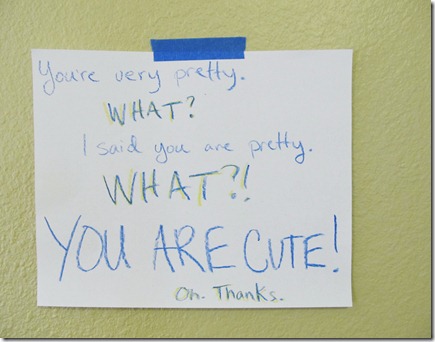 You're very pretty.
WHAT?
I said you are pretty.
WHAT?!
YOU ARE CUTE!
Oh. Thanks.